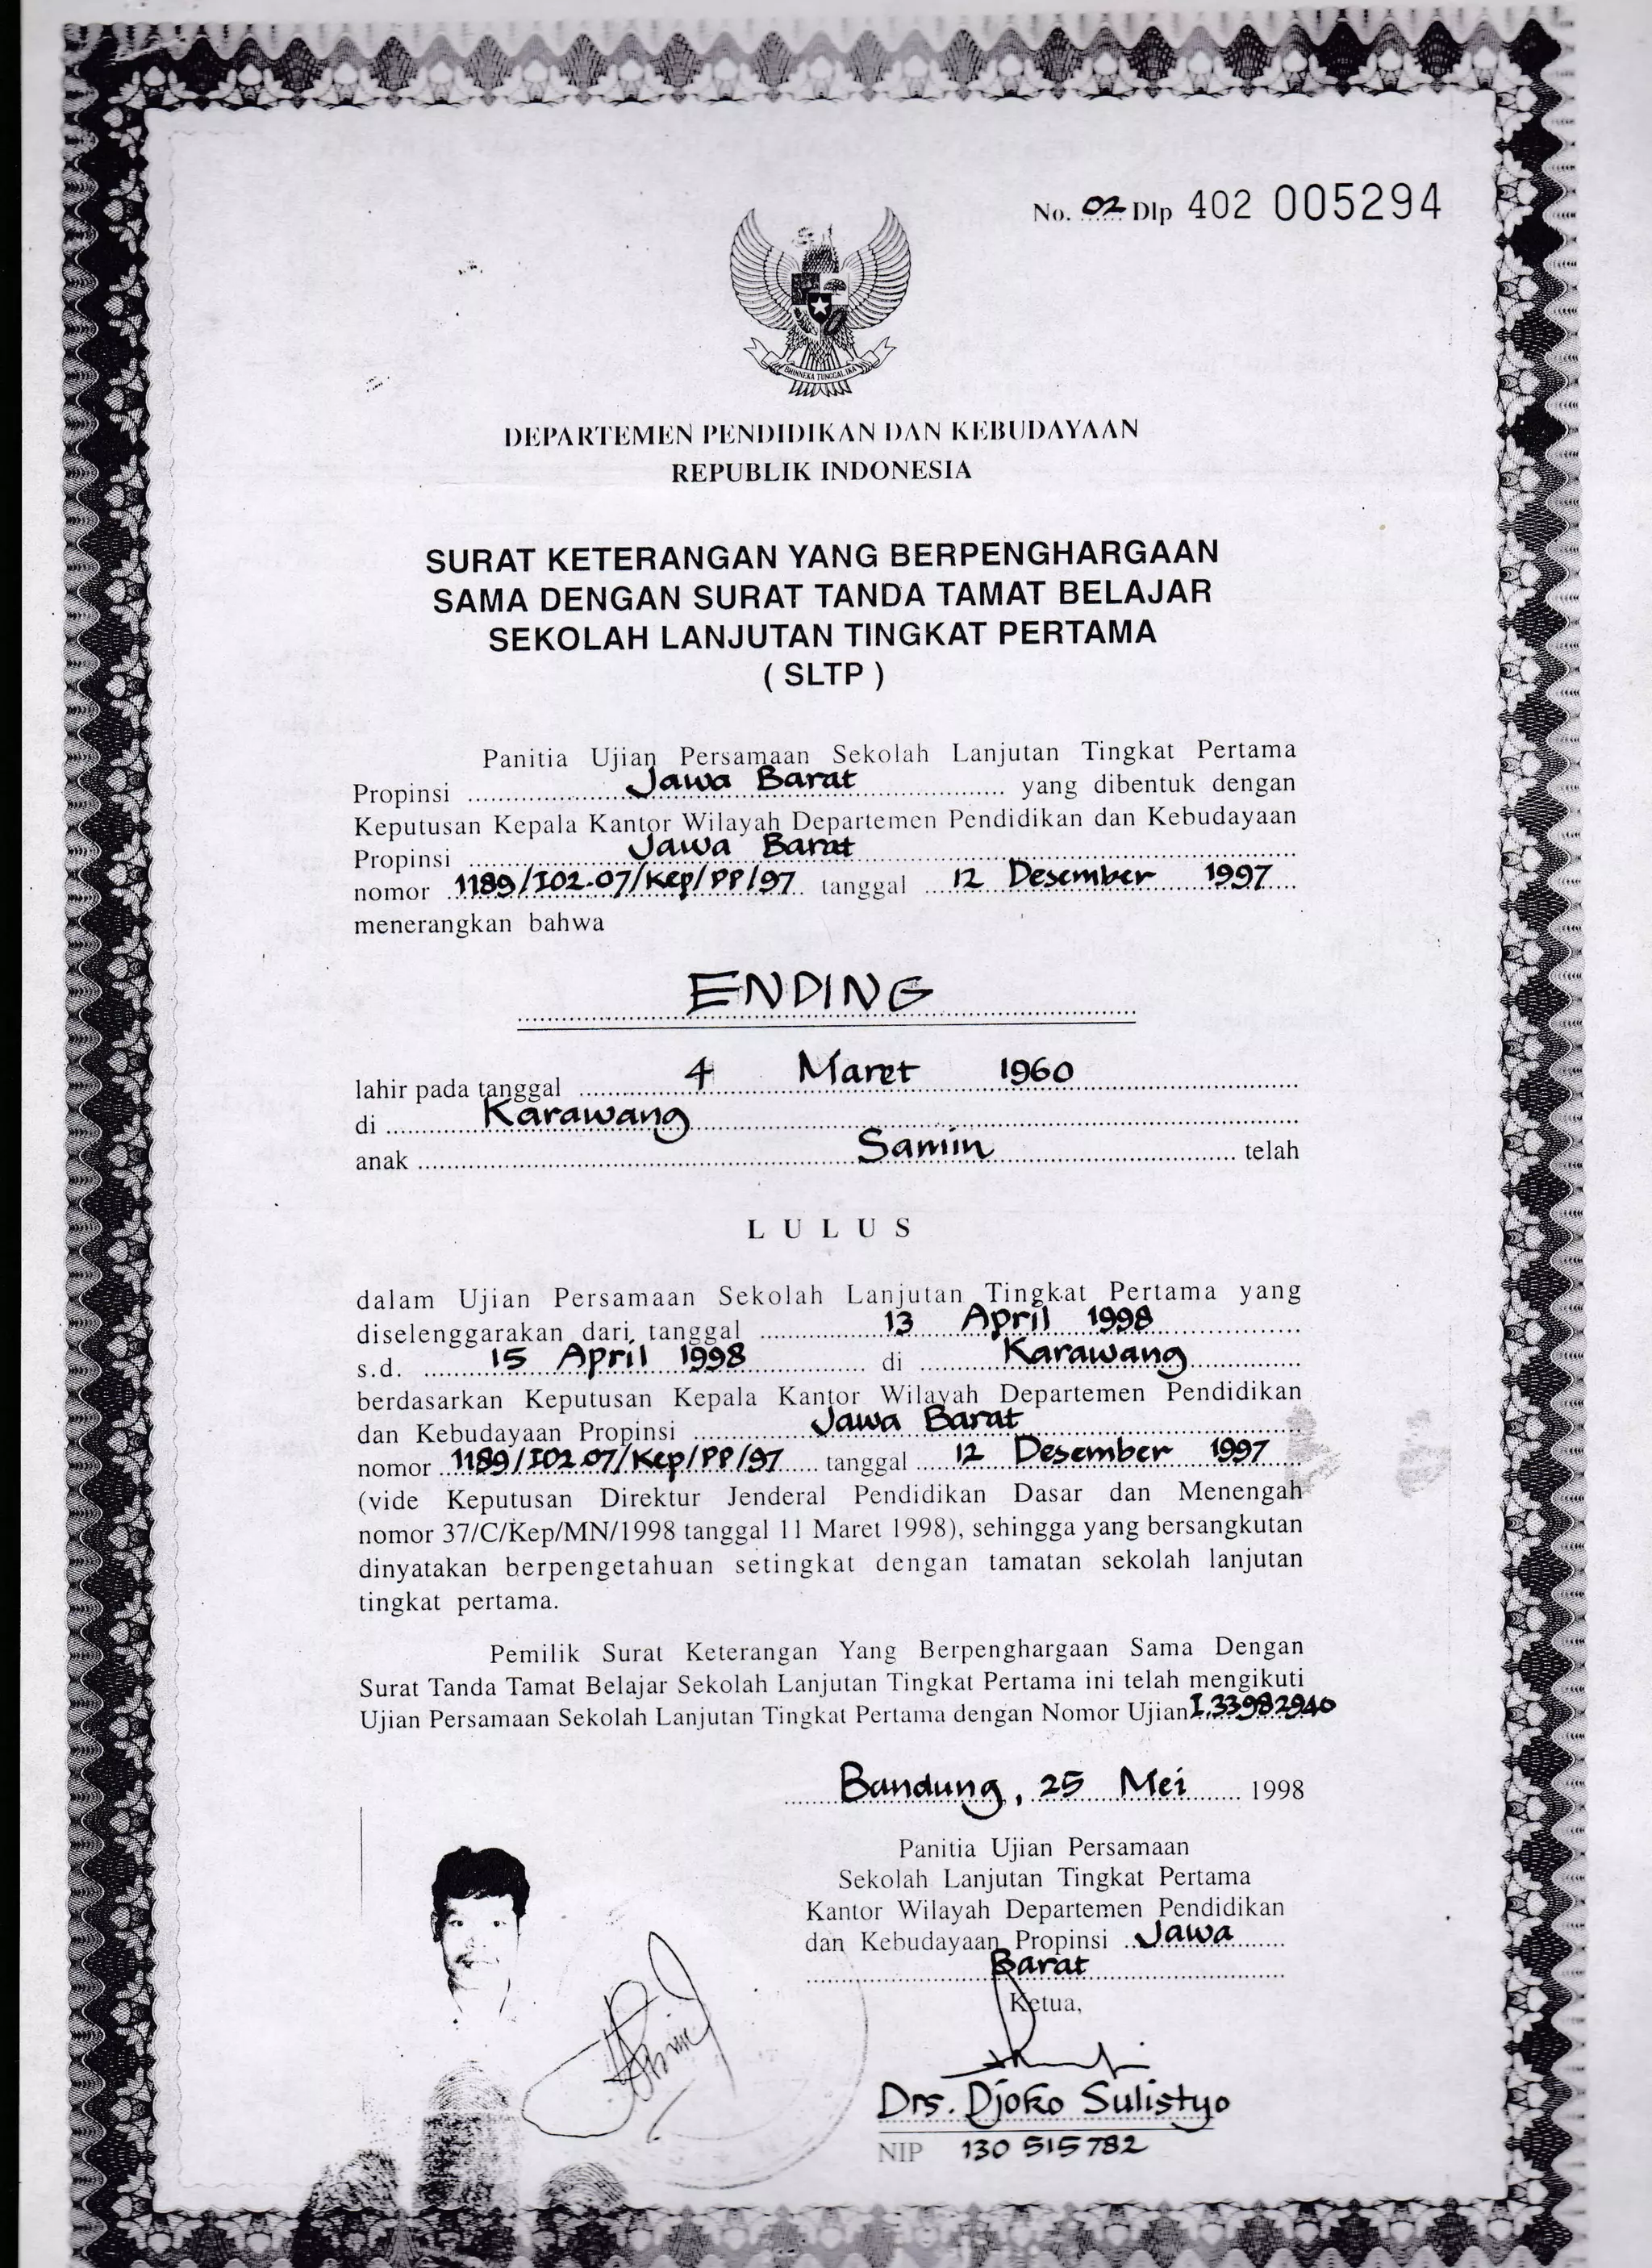 No. 02 Dlp 402 005294
BHINNEKA TUNGGAL IKA
DEPARTEMEN PENDIDIKAN DAN KEBUDAYAAN
REPUBLIK INDONESIA
SURAT KETERANGAN YANG BERPENGHARGAAN
SAMA DENGAN SURAT TANDA TAMAT BELAJAR
SEKOLAH LANJUTAN TINGKAT PERTAMA
( SLTP )
Panitia Ujian Persamaan Sekolah Lanjutan Tingkat Pertama
Propinsi Jawa Barat yang dibentuk dengan
Keputusan Kepala Kantor Wilayah Departemen Pendidikan dan Kebudayaan
Propinsi Jawa Barat
nomor 1189/I02.07/Kep/PP/97 tanggal 12 Desember 1997
menerangkan bahwa
ENDING
lahir pada tanggal 4 Maret 1960
di Karawang
anak Samin telah
L U L U S
dalam Ujian Persamaan Sekolah Lanjutan Tingkat Pertama yang
diselenggarakan dari tanggal 13 April 1998
s.d. 15 April 1998 di Karawang
berdasarkan Keputusan Kepala Kantor Wilayah Departemen Pendidikan
dan Kebudayaan Propinsi Jawa Barat
nomor 1189/I02.07/Kep/PP/97 tanggal 12 Desember 1997
(vide Keputusan Direktur Jenderal Pendidikan Dasar dan Menengah
nomor 37/C/Kep/MN/1998 tanggal 11 Maret 1998), sehingga yang bersangkutan
dinyatakan berpengetahuan setingkat dengan tamatan sekolah lanjutan
tingkat pertama.
Pemilik Surat Keterangan Yang Berpenghargaan Sama Dengan
Surat Tanda Tamat Belajar Sekolah Lanjutan Tingkat Pertama ini telah mengikuti
Ujian Persamaan Sekolah Lanjutan Tingkat Pertama dengan Nomor Ujian I.33982940
Bandung, 25 Mei 1998
Panitia Ujian Persamaan
Sekolah Lanjutan Tingkat Pertama
Kantor Wilayah Departemen Pendidikan
dan Kebudayaan Propinsi Jawa
Barat
Ketua,
Drs. Djoko Sulistyo
NIP 130 515 782